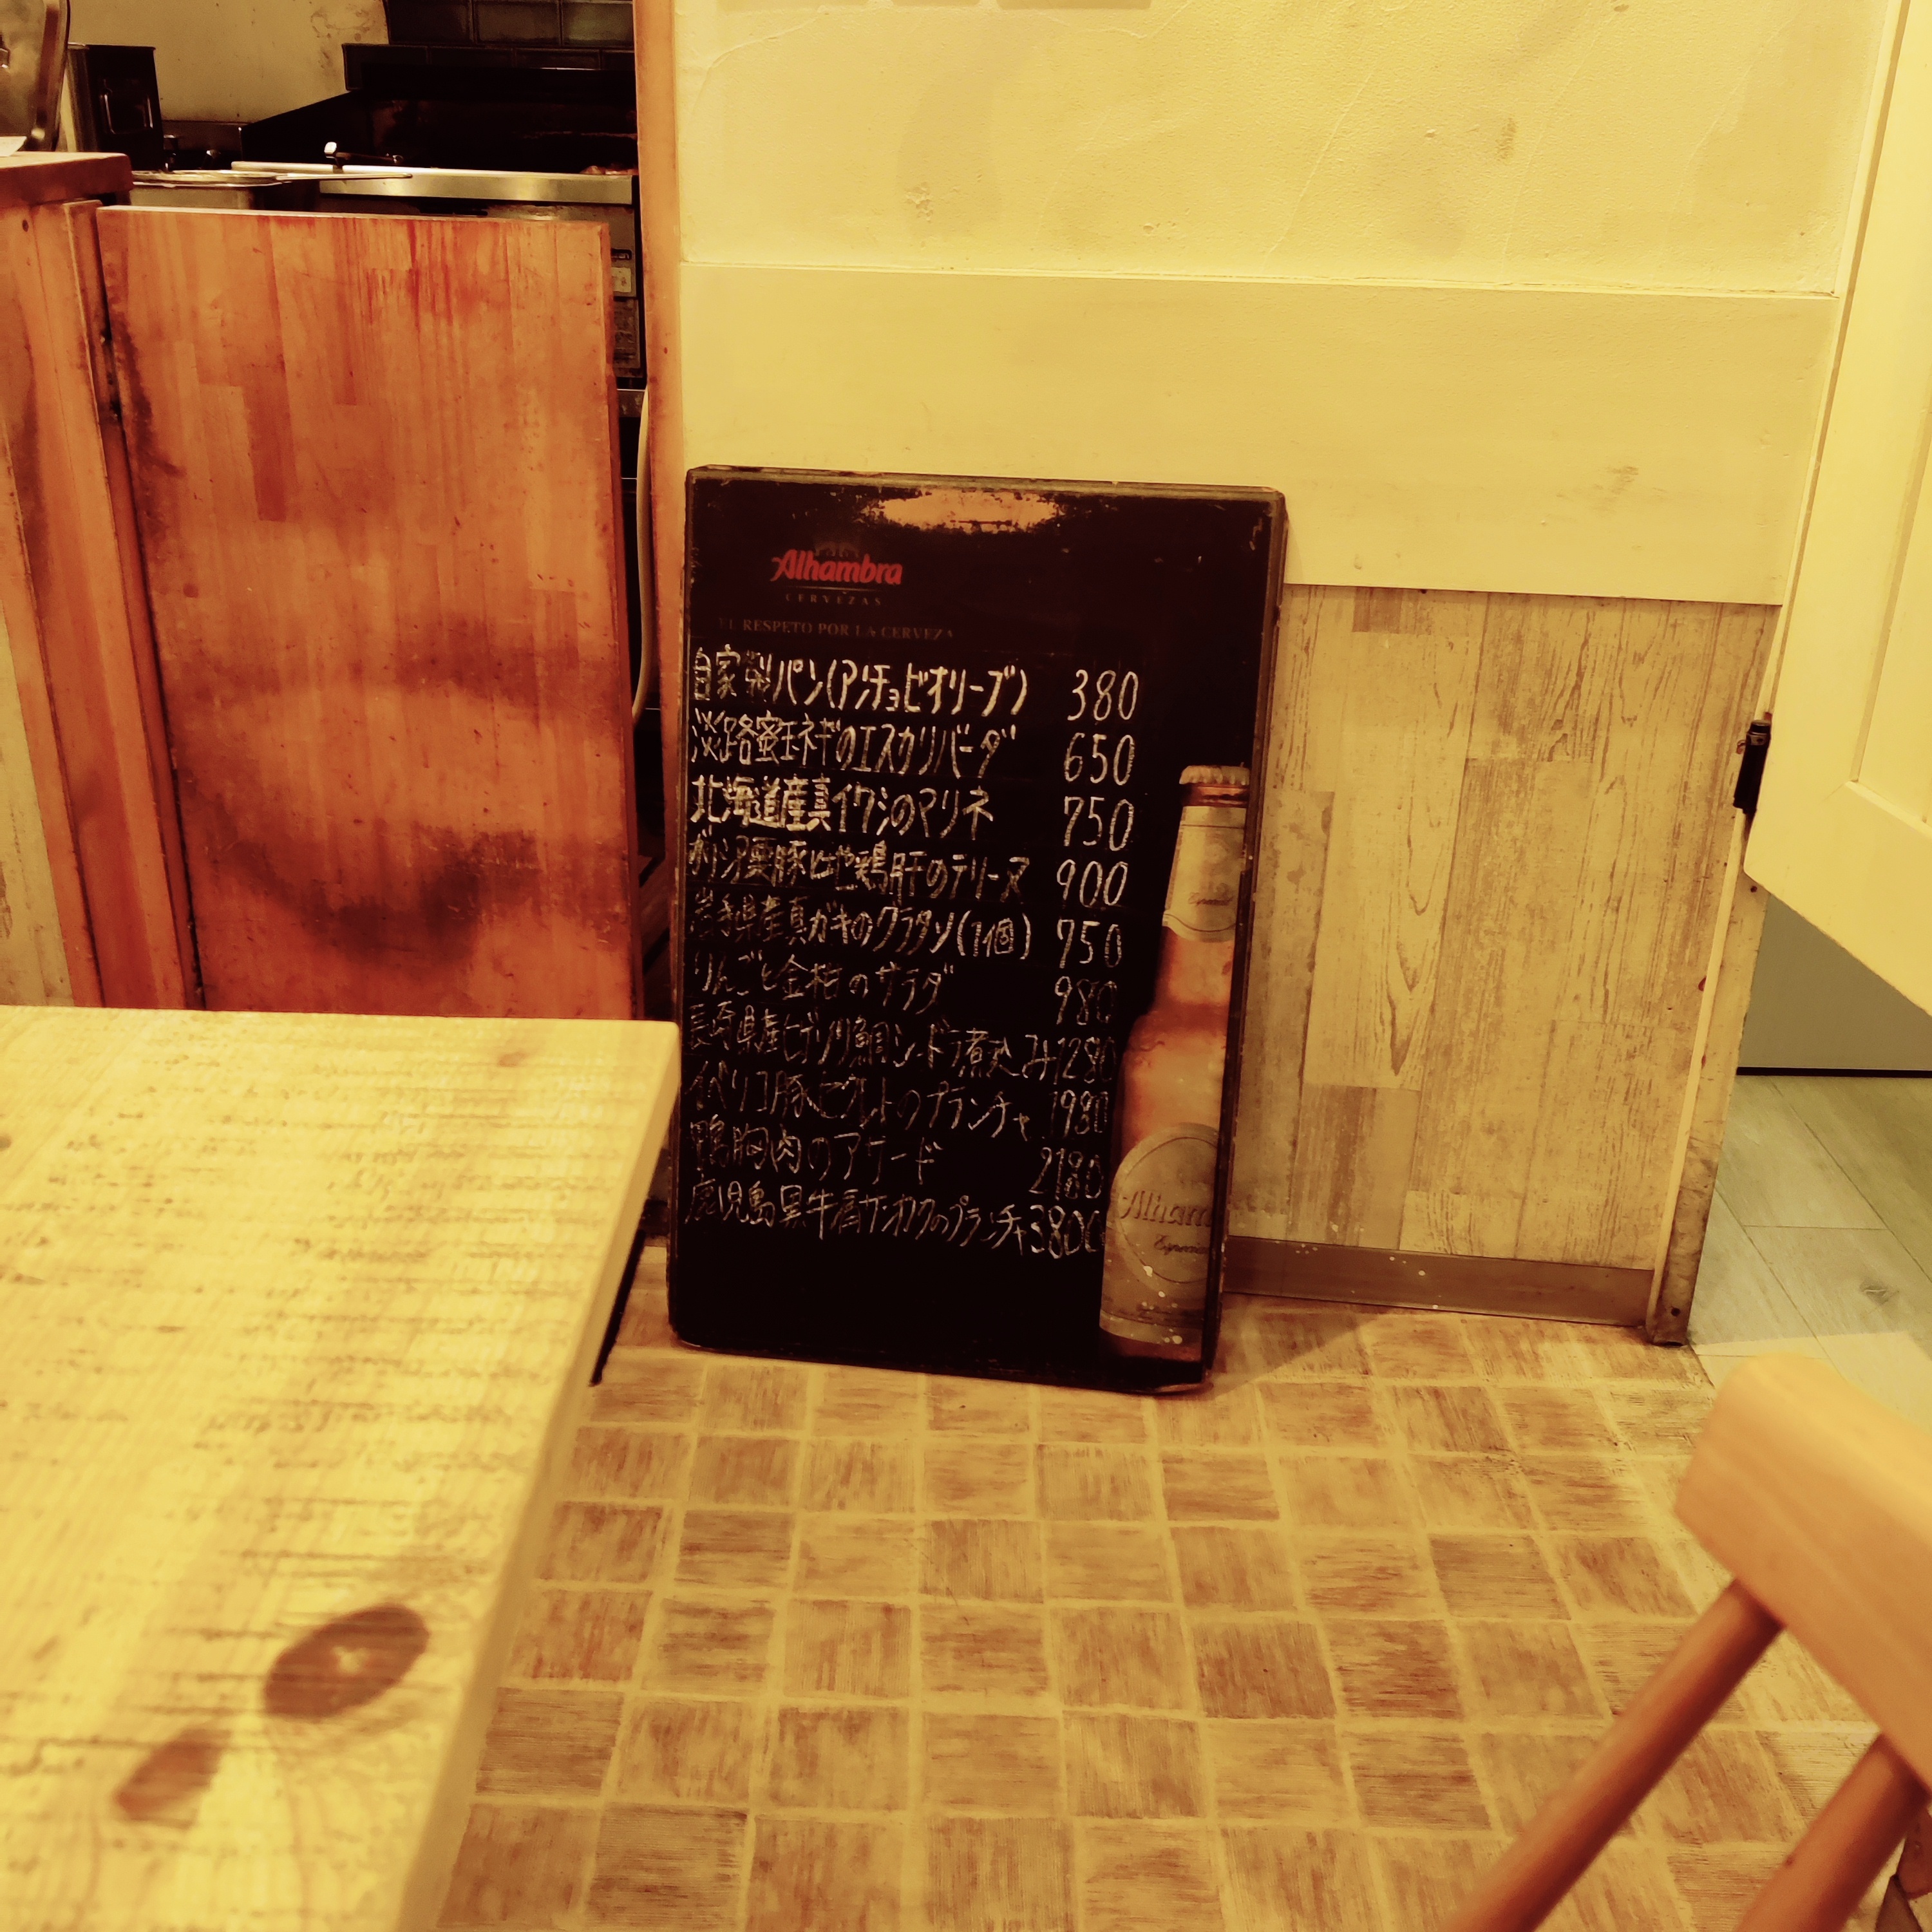 Alhambra
CERVEZAS
EL RESPETO POR LA CERVEZA
自家製パン(アンチョビオリーブ) 380
淡路蜜玉ネギのエスカリバーダ 650
北海道産真イワシのマリネ 750
ガリシア栗豚と地鶏肝のテリーヌ 900
岩手県産真ガキのグラタン(1個) 750
りんごと金柑のサラダ 980
長崎県産ヒゲソリ鯛シードラ煮込み 1280
イベリコ豚のプランチャ 1980
鴨胸肉のアサード 2180
鹿児島黒牛肩サンカクのプランチャ 3800
Especial
Alham
Especial